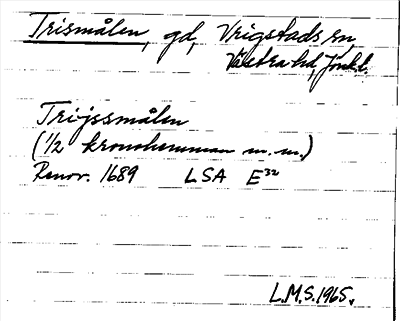 Trismålen, gd, Vrigstads sn,
Västra hd, Jönk.l.
Trijssmålen
(1/2 kronohemman m.m.)
Renov. 1689 LSA E32
L.M.S. 1965.